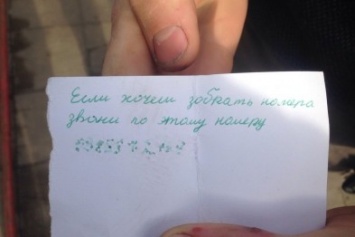 Если хочеш зобрать номера
звони по этому номеру